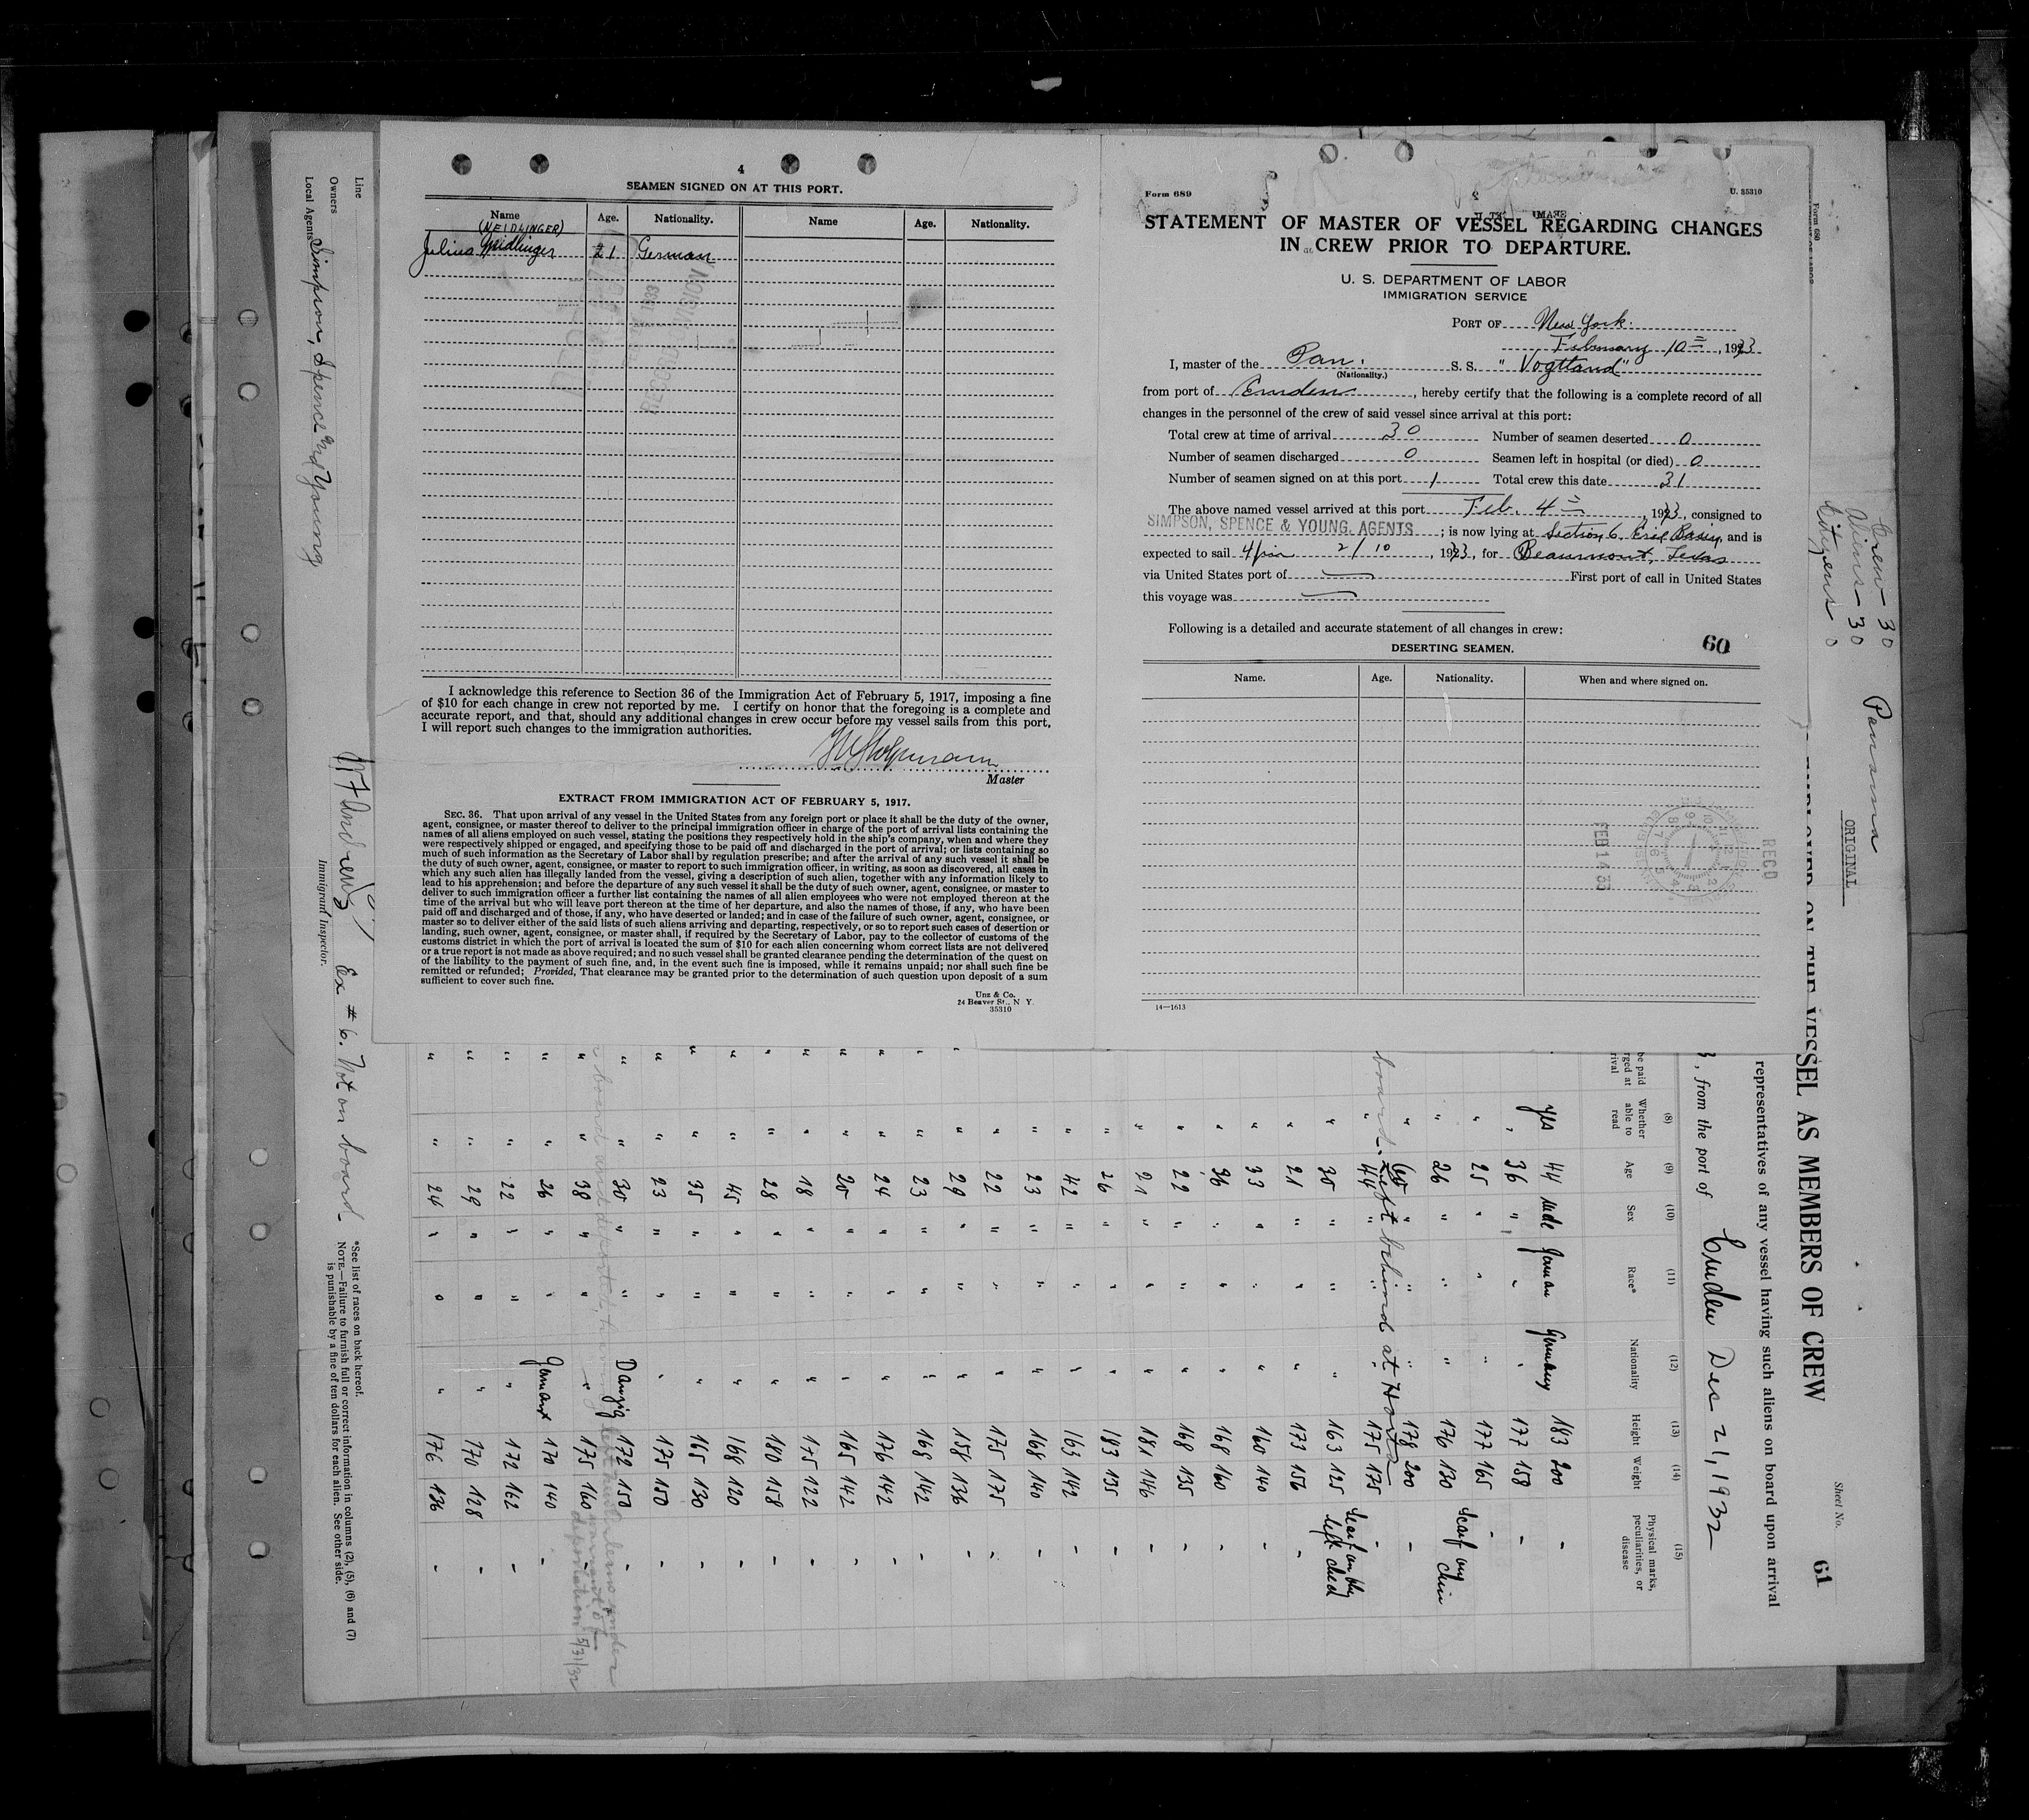 4
SEAMEN SIGNED ON AT THIS PORT.
Name Age. Nationality. Name Age. Nationality.
(NEIDLINGER)
Julius Neidlinger 21 German
RECORD DIVISION
I acknowledge this reference to Section 36 of the Immigration Act of February 5, 1917, imposing a fine
of $10 for each change in crew not reported by me. I certify on honor that the foregoing is a complete and
accurate report, and that, should any additional changes in crew occur before my vessel sails from this port,
I will report such changes to the immigration authorities.
Master
EXTRACT FROM IMMIGRATION ACT OF FEBRUARY 5, 1917.
SEC. 36. That upon arrival of any vessel in the United States from any foreign port or place it shall be the duty of the owner,
agent, consignee, or master thereof to deliver to the principal immigration officer in charge of the port of arrival lists containing the
names of all aliens employed on such vessel, stating the positions they respectively hold in the ship's company, when and where they
were respectively shipped or engaged, and specifying those to be paid off and discharged in the port of arrival; or lists containing so
much of such information as the Secretary of Labor shall by regulation prescribe; and after the arrival of any such vessel it shall be
the duty of such owner, agent, consignee, or master to report to such immigration officer, in writing, as soon as discovered, all cases in
which any such alien has illegally landed from the vessel, giving a description of such alien, together with any information likely to
lead to his apprehension; and before the departure of any such vessel it shall be the duty of such owner, agent, consignee, or master to
deliver to such immigration officer a further list containing the names of all alien employees who were not employed thereon at the
time of the arrival but who will leave port thereon at the time of her departure, and also the names of those, if any, who have been
paid off and discharged and of those, if any, who have deserted or landed; and in case of the failure of such owner, agent, consignee, or
master so to deliver either of the said lists of such aliens arriving and departing, respectively, or so to report such cases of desertion or
landing, such owner, agent, consignee, or master shall, if required by the Secretary of Labor, pay to the collector of customs of the
customs district in which the port of arrival is located the sum of $10 for each alien concerning whom correct lists are not delivered
or a true report is not made as above required; and no such vessel shall be granted clearance pending the determination of the quest on
of the liability to the payment of such fine, and, in the event such fine is imposed, while it remains unpaid; nor shall such fine be
remitted or refunded; Provided, That clearance may be granted prior to the determination of such question upon deposit of a sum
sufficient to cover such fine.
Unz & Co.
24 Beaver St., N Y.
35310
Form 689
U. 35310
STATEMENT OF MASTER OF VESSEL REGARDING CHANGES
IN CREW PRIOR TO DEPARTURE.
U. S. DEPARTMENT OF LABOR
IMMIGRATION SERVICE
PORT OF New York.
February 10, 1933
I, master of the Pan. S. S. "Vogtland"
(Nationality.)
from port of Emden, hereby certify that the following is a complete record of all
changes in the personnel of the crew of said vessel since arrival at this port:
Total crew at time of arrival 30 Number of seamen deserted 0
Number of seamen discharged 0 Seamen left in hospital (or died) 0
Number of seamen signed on at this port 1 Total crew this date 31
The above named vessel arrived at this port Feb. 4, 1933, consigned to
SIMPSON, SPENCE & YOUNG, AGENTS; is now lying at Section 6. Erie Basin, and is
expected to sail 4pm 2/10, 1933, for Beaumont, Texas
via United States port of First port of call in United States
this voyage was
Following is a detailed and accurate statement of all changes in crew:
60
DESERTING SEAMEN.
Name. Age. Nationality. When and where signed on.
REC'D
FEB 14 33
14—1613
Line
Owners
Local Agents Simpson, Spence and Young
Immigrant Inspector.
Ex # 6. Not on board
*See list of races on back hereof.
NOTE.—Failure to furnish full or correct information in columns (2), (5), (6) and (7)
is punishable by a fine of ten dollars for each alien. See other side.
Crew - 30
Aliens - 30
Citizens 0
Panama
ORIGINAL
Sheet No. 61
VESSEL AS MEMBERS OF CREW
representatives of any vessel having such aliens on board upon arrival
, from the port of Emden Dec 21, 1932
(8) (9) (10) (11) (12) (13) (14) (15)
Whether able to read Age Sex Race* Nationality Height Weight Physical marks, peculiarities, or disease
yes 44 Male German Germany 183 200 -
" 36 " " " 177 158 -
" 25 " " " 177 165 -
" 26 " " " 176 130 Scarf on chin
" 60 " " " 178 200 -
" 44 " " " 175 175 -
board - Left behind at Horta
" 30 " " " 163 125 Scarf on the left
" 21 " " " 173 156 -
" 33 " " " 160 140 -
" 36 " " " 168 160 -
" 22 " " " 168 135 -
" 21 " " " 181 146 -
" 26 " " " 183 135 -
" 42 " " " 163 142 -
" 23 " " " 168 140 -
" 22 " " " 175 175 -
" 29 " " " 158 136 -
" 23 " " " 168 142 -
" 24 " " " 176 142 -
" 20 " " " 165 142 -
" 18 " " " 175 122 -
" 28 " " " 180 158 -
" 45 " " " 168 120 -
" 35 " " " 165 130 -
" 23 " " " 175 150 -
" 30 " " Danzig 172 150 -
" 38 " " " 175 160 -
deportation 5/31/32
" 26 " " Germany 170 140 -
" 22 " " " 172 162 -
" 29 " " " 170 128 -
" 24 " " " 176 136 -